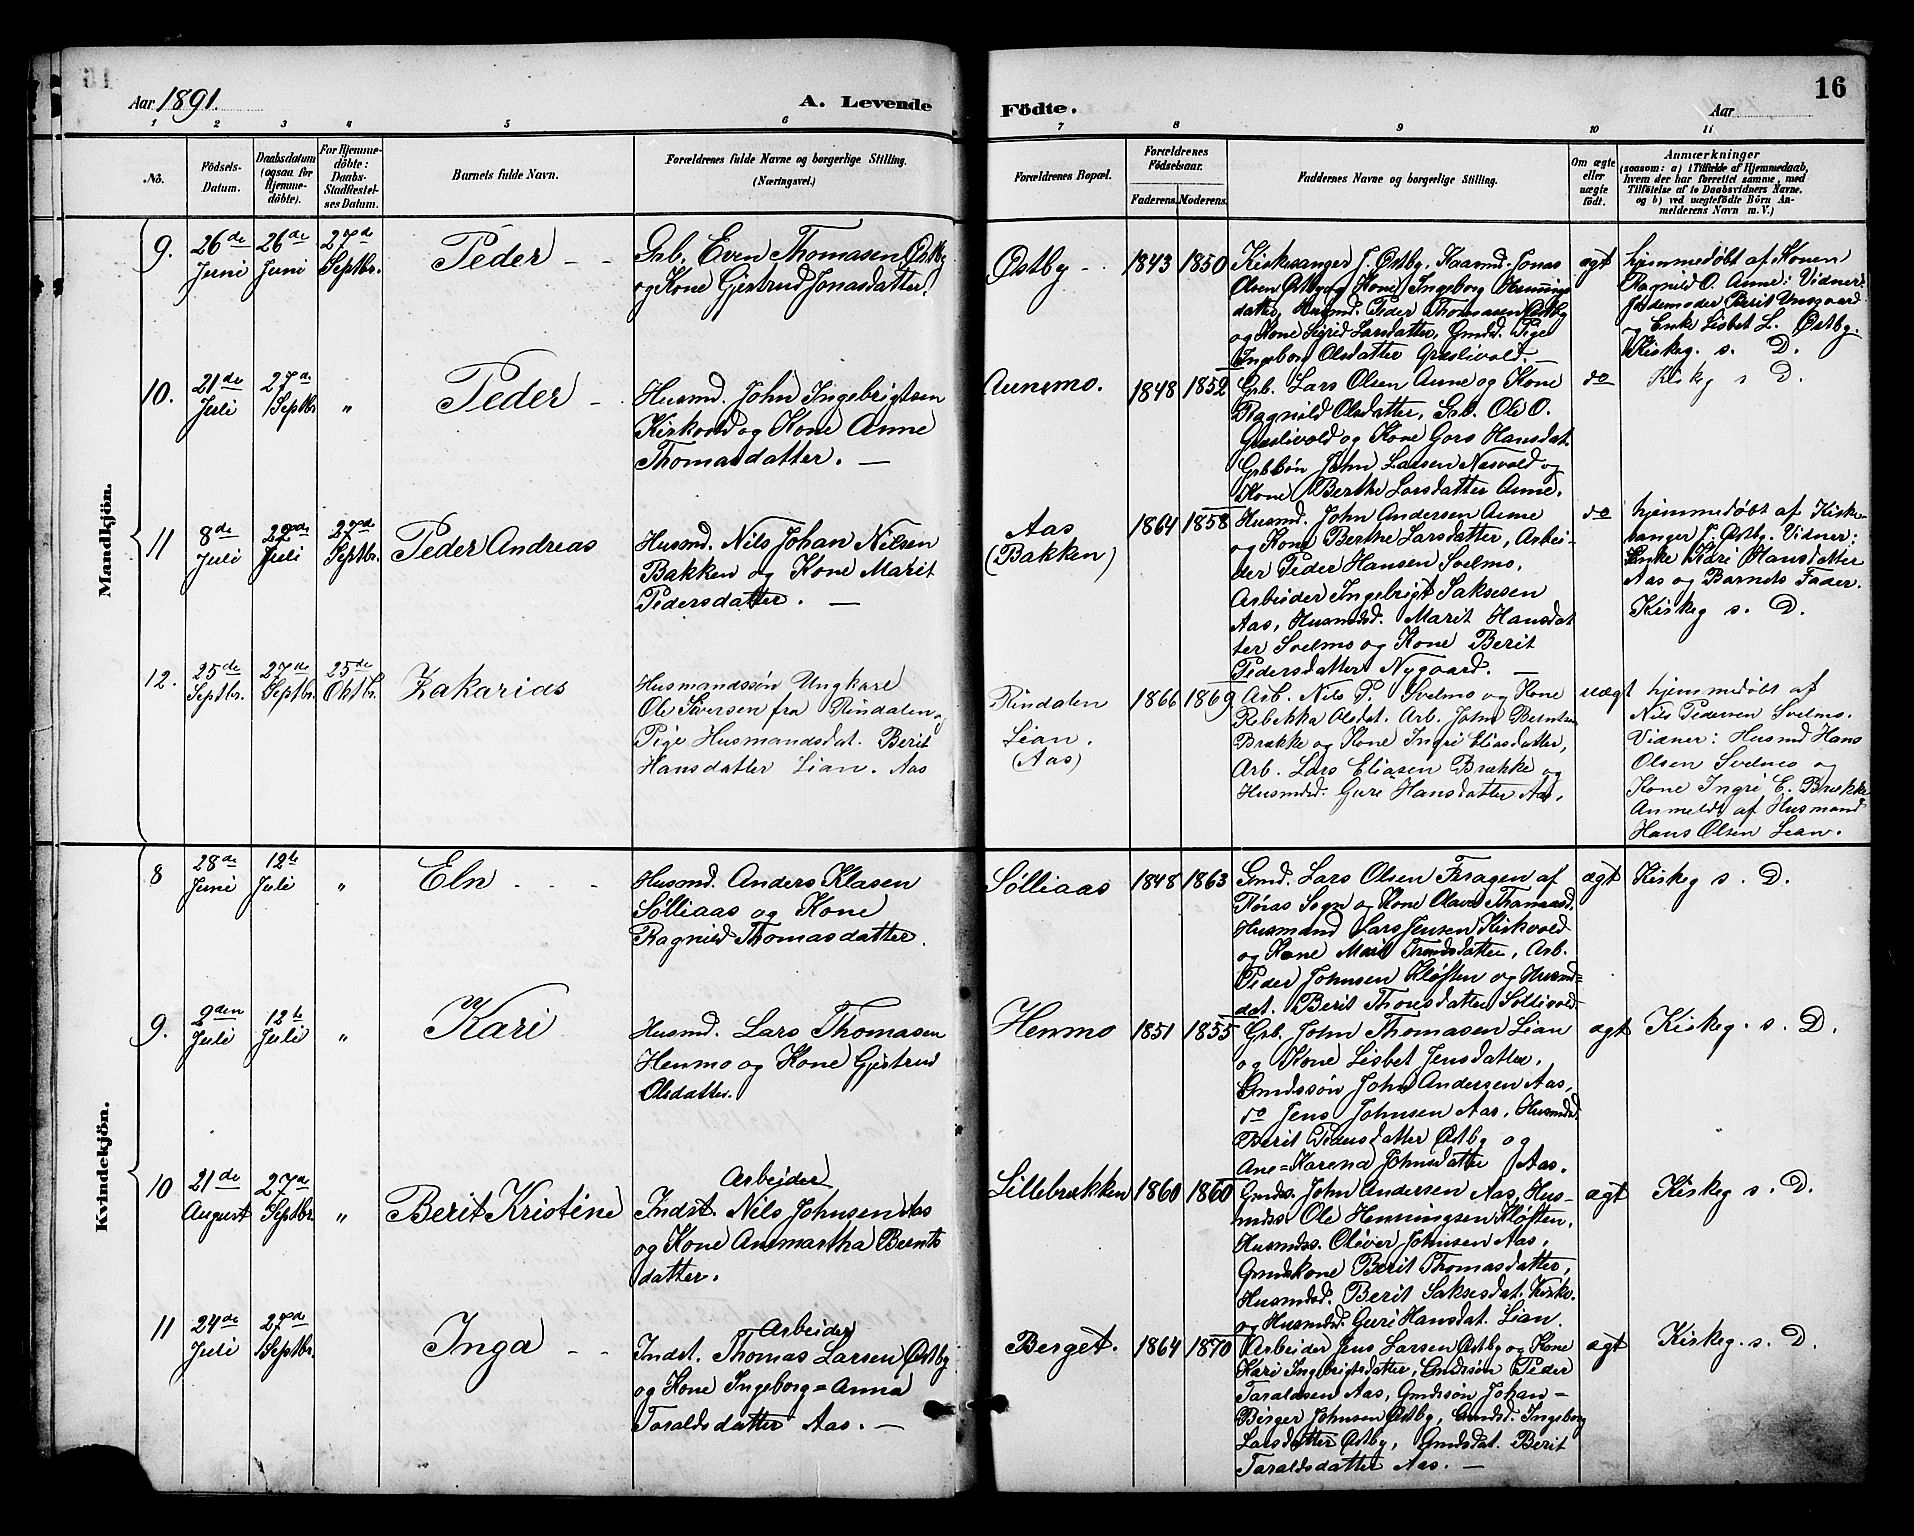 Aar 1891.
A. Levende
Födte.
Aar
16
1 2 3 4 5 6 7 8 9 10 11
No.
Födsels-
Datum.
Daabsdatum
(ogsaa for
Hjemme-
döbte).
For Hjemme-
döbte:
Daabs-
Stadfæstel-
ses Datum.
Barnets fulde Navn.
Forældrenes fulde Navne og borgerlige Stilling.
(Næringsvei.)
Forældrenes Bopæl.
Forældrenes
Födselsaar.
Faderens. Moderens.
Faddernes Navne og borgerlige Stilling.
Om ægte
eller
uægte
födt.
Anmærkninger
(saasom: a) i Tilfælde af Hjemmedaab,
hvem der har forrettet samme, med
Tilföielse af to Daabsvidners Navne,
og b) ved uægtefödte Börn An-
melderens Navn m. V.)
Mandkjön.
9.
26de
Juni
26de
Juni
27de
Septbr.
Peder
Grb. Even Thomasen Østby
og Kone Gjertrud Jonasdatter.
Østby
1843 1850
Kirkesanger J. Østby. Kaarmd. Jonas
Olsen Østby og Kone Ingeborg Hennings
datter, Husmd. Peder Thomassen Østby
og Kone Sigrid Larsdatter, Gmds. Pige
Ingeborg Olsdatter Græslivold. —
ægt
hjemmedøbt af Konen
Ragnild O. Aune: Vidner:
Jordemoder Berit Unsgaard
og Enke Lisbet L. Østby.
Kirkeg. s. D.
10.
21de
Juli
27de
Septbr
"
Peder
Husmd. John Ingebrigtsen
Kirkvold og Kone Anne
Thomasdatter. —
Aunemo.
1848 1852
Grb. Lars Olsen Aune og Kone
Ragnild Olsdatter, Grb. Ole O.
Græslivold og Kone Gors Hansdat.
Grbsøn John Larsen Næsvold og
Kone Berthe Larsdatter Aune.
do
Kirkeg s D.
11
8de
Juli
22de
Juli
27de
Septbr.
Peder Andreas
Husmd. Nils Johan Nilsen
Bakken og Kone Marit
Pedersdatter. —
Aas
(Bakken)
1864 1858
Husmd. John Andersen Aune
og Kone Berthe Larsdatter, Arbei-
der Peder Hansen Svelmo.
Arbeider Ingebrigt Saksesen
Aas, Husmdsd. Marit Hansdat
ter Svelmo og Kone Berit
Pedersdatter Nygaard. —
do
hjemmedøbt af Kirke-
sanger J. Østby. Vidner:
Enke Kari Hansdatter
Aas og Barnets Fader.
Kirkeg s. D.
12.
25de
Septbr.
27de
Septbr.
25de
Oktbr.
Zakarias
Husmandssøn Ungkarl
Ole Siversen fra Rindalen og
Pige Husmandsdat. Berit
Hansdatter Lian. Aas
Rindalen
Lian.
(Aas)
1866 1869
Arb. Nils P. Svelmo og Kone
Rebekka Olsdat. Arb. John Berntsen
Brække og Kone Ingri Eliasdatter,
Arb. Lars Eliasen Brække og
Husmdsd. Guri Hansdatter Aas.
uægt
hjemmedøbt af
Nils Pedersen Svelmo.
Vidner: Husmd Hans
Olsen Svelmo og
Kone Ingri E. Brække
Anmeldt af Husmand
Hans Olsen Lian.
Kvindekjön.
8
28de
Juni
12te
Juli
"
Eln
Husmd. Anders Klasen
Sølliaas og Kone
Ragnild Thomasdatter.
Sølliaas
1848 1863
Gmd. Lars Olsen Fragen af
Røras Sogn og Kone Olava Thomasd.
Husmand Lars Jensen Kirkvold
og Kone Marit Trondsdatter, Arb.
Peder Johnsen Kløften og Husmd=
dat. Berit Thomsdatter Søllivold
ægt
Kirkeg s. D.
9.
2den
Juli
12te
Juli
"
Kari
Husmd. Lars Thomasen
Henmo og Kone Gjertrud
Olsdatter.
Henmo
1851 1855
Grb. John Thomasen Lian
og Kone Lisbet Jensdatter,
Gmdssøn John Andersen Aas,
do Jens Johnsen Aas, Husmdsd.
Berit Pedersdatter Østby og
Ane=Karena Johnsdatter Aas.
ægt
Kirkeg. s. D.
10
21de
August
27de
Septbr
"
Berit Kristine
Arbeider
Indst. Nils Johnsen Aas
og Kone Anmartha Bernts
datter.
Lillebrækken
1860 1860
Gmds. John Andersen Aas, Hus-
mdss. Ole Henningsen Kløften,
Husmdss. Oliver Johnsen Aas,
Gmdskone Berit Thomasdatter,
Husmdsd. Berit Saksesdat. Kirkv.
og Husmdsd. Guri Hansdat. Lian.
ægt
Kirkeg s. D.
11
24de
Juli
27de
Septbr.
Inga
Arbeider
Indst. Thomas Larsen Østby
og Kone Ingeborg=Anna
Taraldsdatter Aas. —
Berget.
1864 1870
Arbeider Jens Larsen Østby og Kone
Kari Ingebrigtsdatter, Gmdssøn Peder
Taraldsen Aas, Gmdssøn Johan=
Birger Johnsen Østby, Gmdsd. Ingeborg
Larsdatter Østby, Gmdsdat. Berit
Taraldsdatter Aas. —
ægt
Kirkeg. s. D.